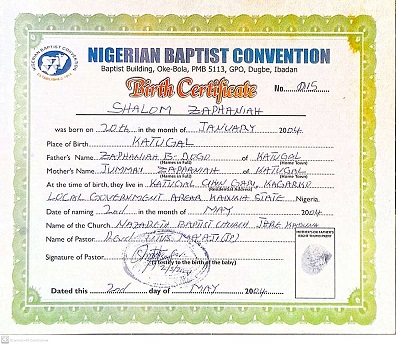 NIGERIAN BAPTIST CONVENTION
Baptist Building, Oke-Bola, PMB 5113, GPO, Dugbe, Ibadan
Birth Certificate
No. 015
SHALOM ZAPHANIAH
was born on 20th in the month of JANUARY 2004
Place of Birth KATUGAL
Father's Name ZAPHANIAH B. DOGO of KATUGAL
(Names in Full) (Home Town)
Mother's Name JUMMAI ZAPHANIAH of KATUGAL
(Names in Full) (Home Town)
At the time of birth, they live in KATUGAL GARI, KAGARKO
(Residential Address)
LOCAL GOVERNMENT AREA KADUNA STATE Nigeria.
Date of naming 2nd in the month of MAY 2004
Name of the Church NAZARETH BAPTIST CHURCH JERE KADUNA
Name of Pastor TITUS
Signature of Pastor
(I testify to the birth of the baby)
Dated this 2nd day of MAY 2004